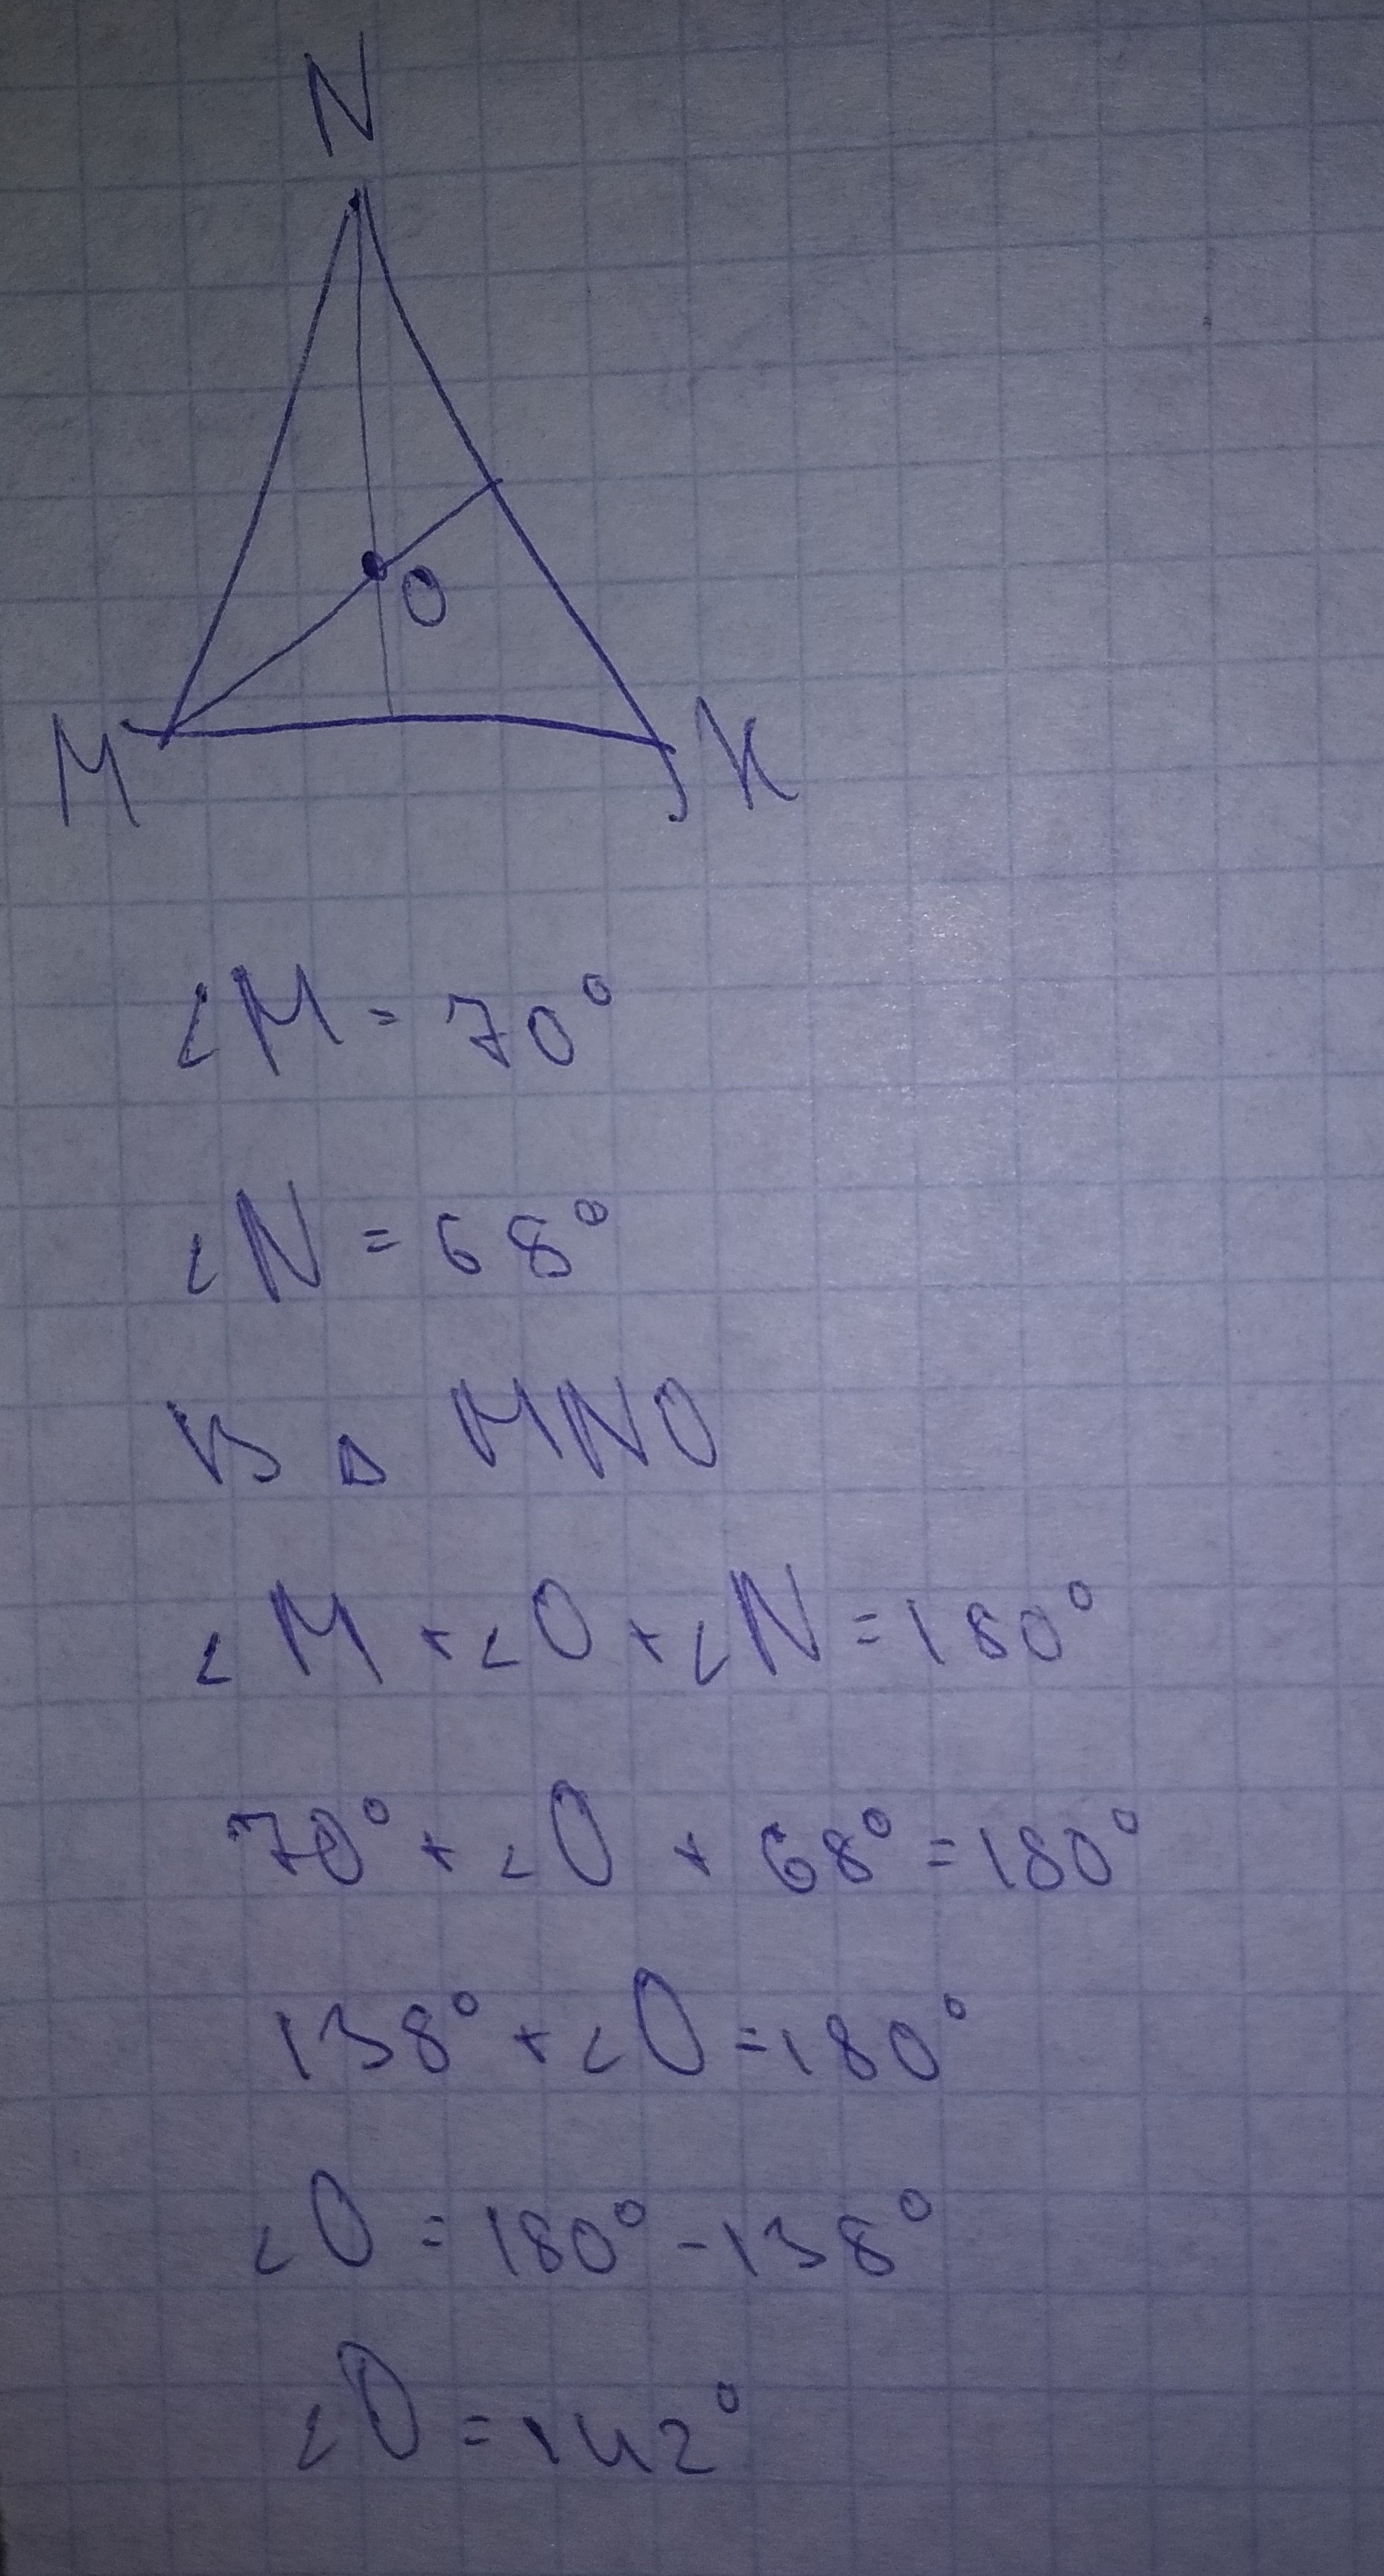 N
O
M K
∠M = 70°
∠N = 68°
В △ MNO
∠M + ∠O + ∠N = 180°
70° + ∠O + 68° = 180°
138° + ∠O = 180°
∠O = 180° - 138°
∠O = 142°